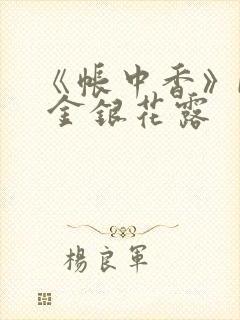 《帳中香》
金銀花露
楊良軍